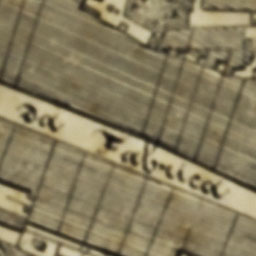 da Fabrica